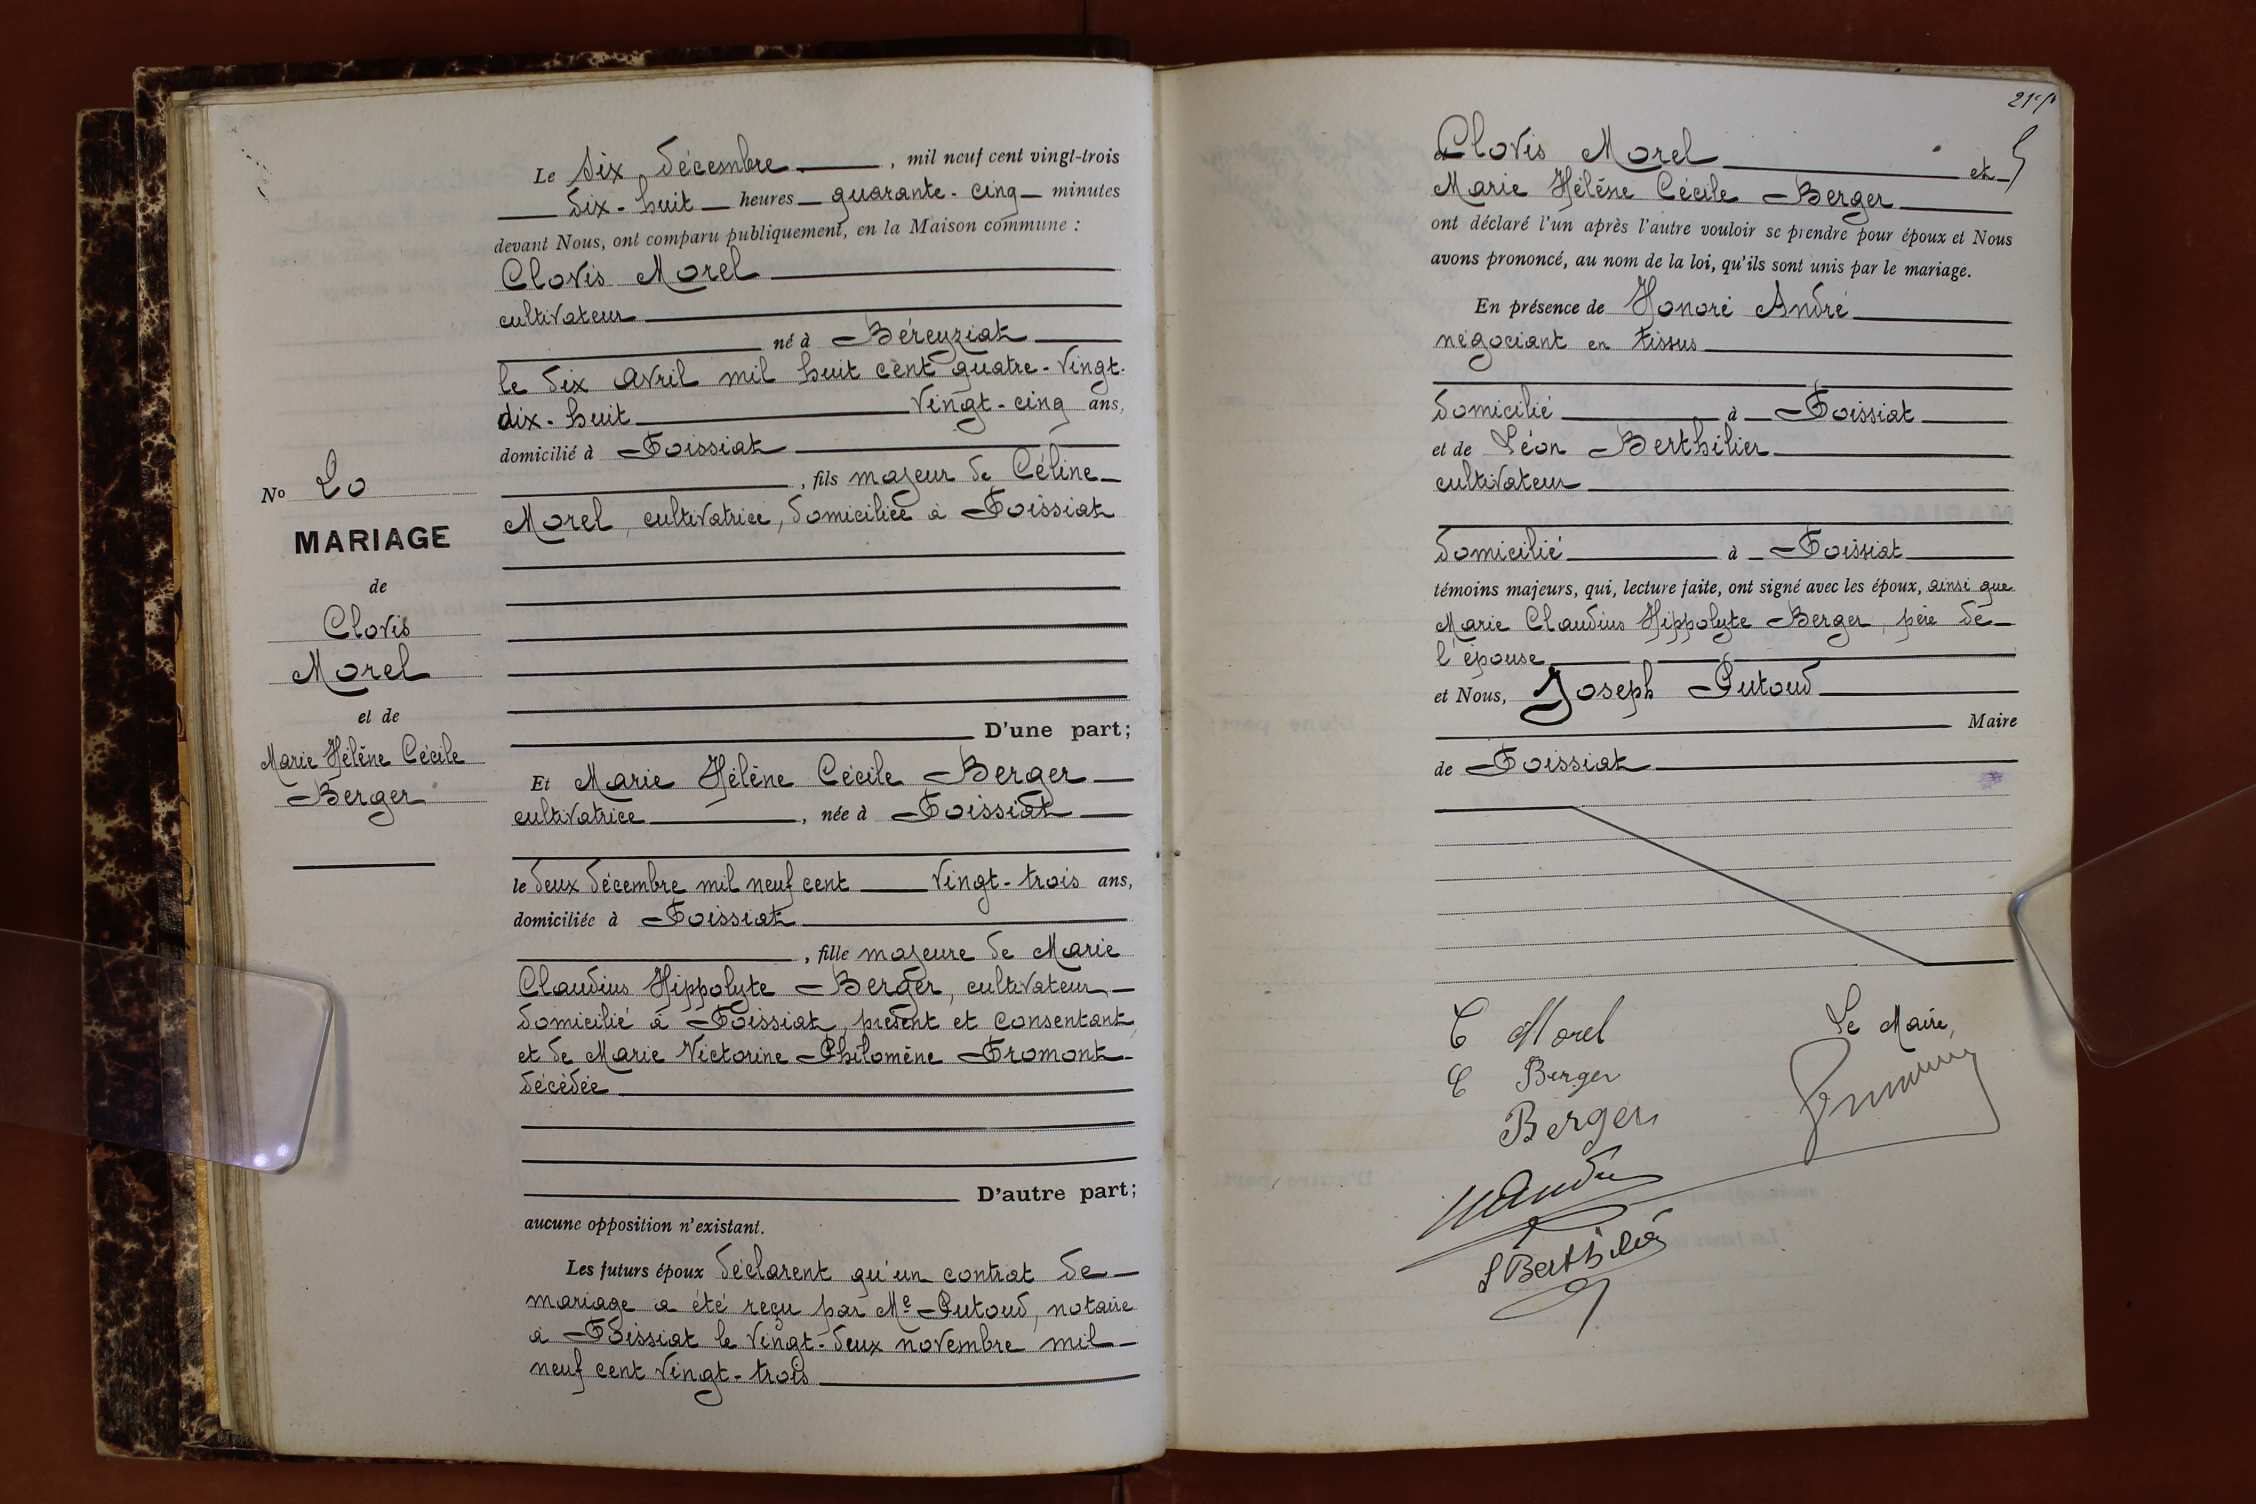 Le six décembre, mil neuf cent vingt-trois
dix-huit heures quarante-cinq minutes
devant Nous, ont comparu publiquement, en la Maison commune :
Clovis Morel
cultivateur
né à Béreyziat
le dix avril mil huit cent quatre-vingt-
dix-huit vingt-cinq ans,
domicilié à Foissiat
, fils majeur de Céline
Morel, cultivatrice, domiciliée à Foissiat
D'une part;
Et Marie Hélène Cécile Berger
cultivatrice, née à Foissiat
le deux décembre mil neuf cent vingt-trois ans,
domiciliée à Foissiat
, fille majeure de Marie
Claudius Hippolyte Berger, cultivateur
domicilié à Foissiat, présent et consentant
et de Marie Victorine Philomène Fromont
décédée
D'autre part;
aucune opposition n'existant.
Les futurs époux déclarent qu'un contrat de
mariage a été reçu par Me Putoud, notaire
à Foissiat le vingt-deux novembre mil
neuf cent vingt-trois
No 20
MARIAGE
de
Clovis
Morel
et de
Marie Hélène Cécile
Berger
Clovis Morel et
Marie Hélène Cécile Berger
ont déclaré l'un après l'autre vouloir se prendre pour époux et Nous
avons prononcé, au nom de la loi, qu'ils sont unis par le mariage.
En présence de Honoré André
négociant en tissus
domicilié à Foissiat
et de Léon Berthilier
cultivateur
domicilié à Foissiat
témoins majeurs, qui, lecture faite, ont signé avec les époux, ainsi que
Marie Claudius Hippolyte Berger, père de
l'épouse
et Nous, Joseph Putoud
Maire
de Foissiat
C Morel
C Berger
Berger
Le Maire,
HAndré
LBerthilier